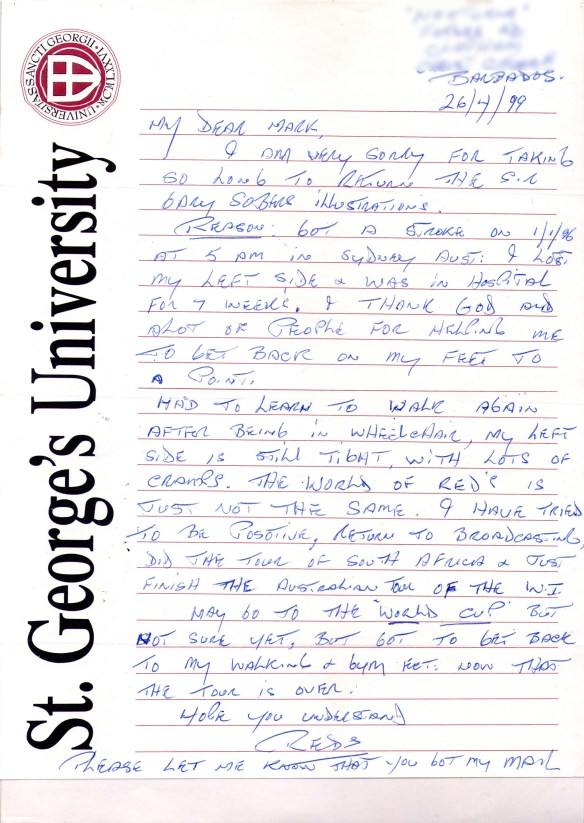 BARBADOS.
26/4/99
MY DEAR MARK,
I AM VERY SORRY FOR TAKING
SO LONG TO RETURN THE SIR
GARY SOBERS ILLUSTRATIONS.
REASON: GOT A STROKE ON 1/1/96
AT 5 AM IN SYDNEY AUST: I LOST
MY LEFT SIDE & WAS IN HOSPITAL
FOR 7 WEEKS. I THANK GOD AND
ALOT OF PEOPLE FOR HELPING ME
TO GET BACK ON MY FEET TO
A POINT.
HAD TO LEARN TO WALK AGAIN
AFTER BEING IN WHEELCHAIR, MY LEFT
SIDE IS STILL TIGHT, WITH LOTS OF
CRAMPS. THE WORLD OF RED'S IS
JUST NOT THE SAME. I HAVE TRIED
TO BE POSITIVE, RETURN TO BROADCASTING,
DID THE TOUR OF SOUTH AFRICA & JUST
FINISH THE AUSTRALIAN TOUR OF THE W.I
MAY GO TO THE "WORLD CUP" BUT
NOT SURE YET, BUT GOT TO GET BACK
TO MY WALKING & GYM FET. NOW THAT
THE TOUR IS OVER.
HOPE YOU UNDERSTAND
REDS
PLEASE LET ME KNOW THAT YOU GOT MY MAIL
St. George's University
UNIVERSITAS SANCTI GEORGII